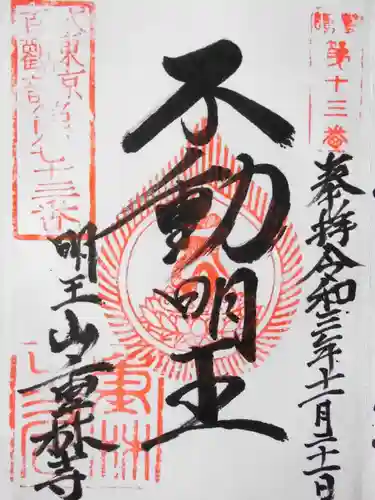 豊島
第十三番
奉拝 令和三年十一月二十一日
不動明王
大東京百観音第七十三番
明王山重林寺
重林